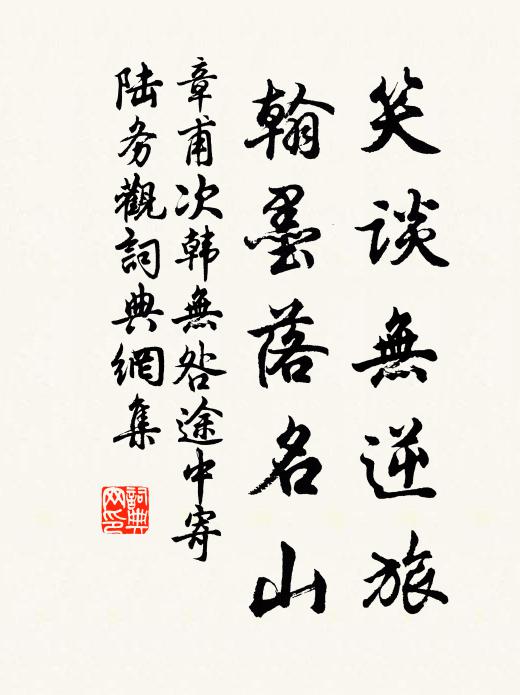 笑谈無逆旅
翰墨落名山
章甫次韩無咎途中寄
陆务觀詞典網集
詞典網印